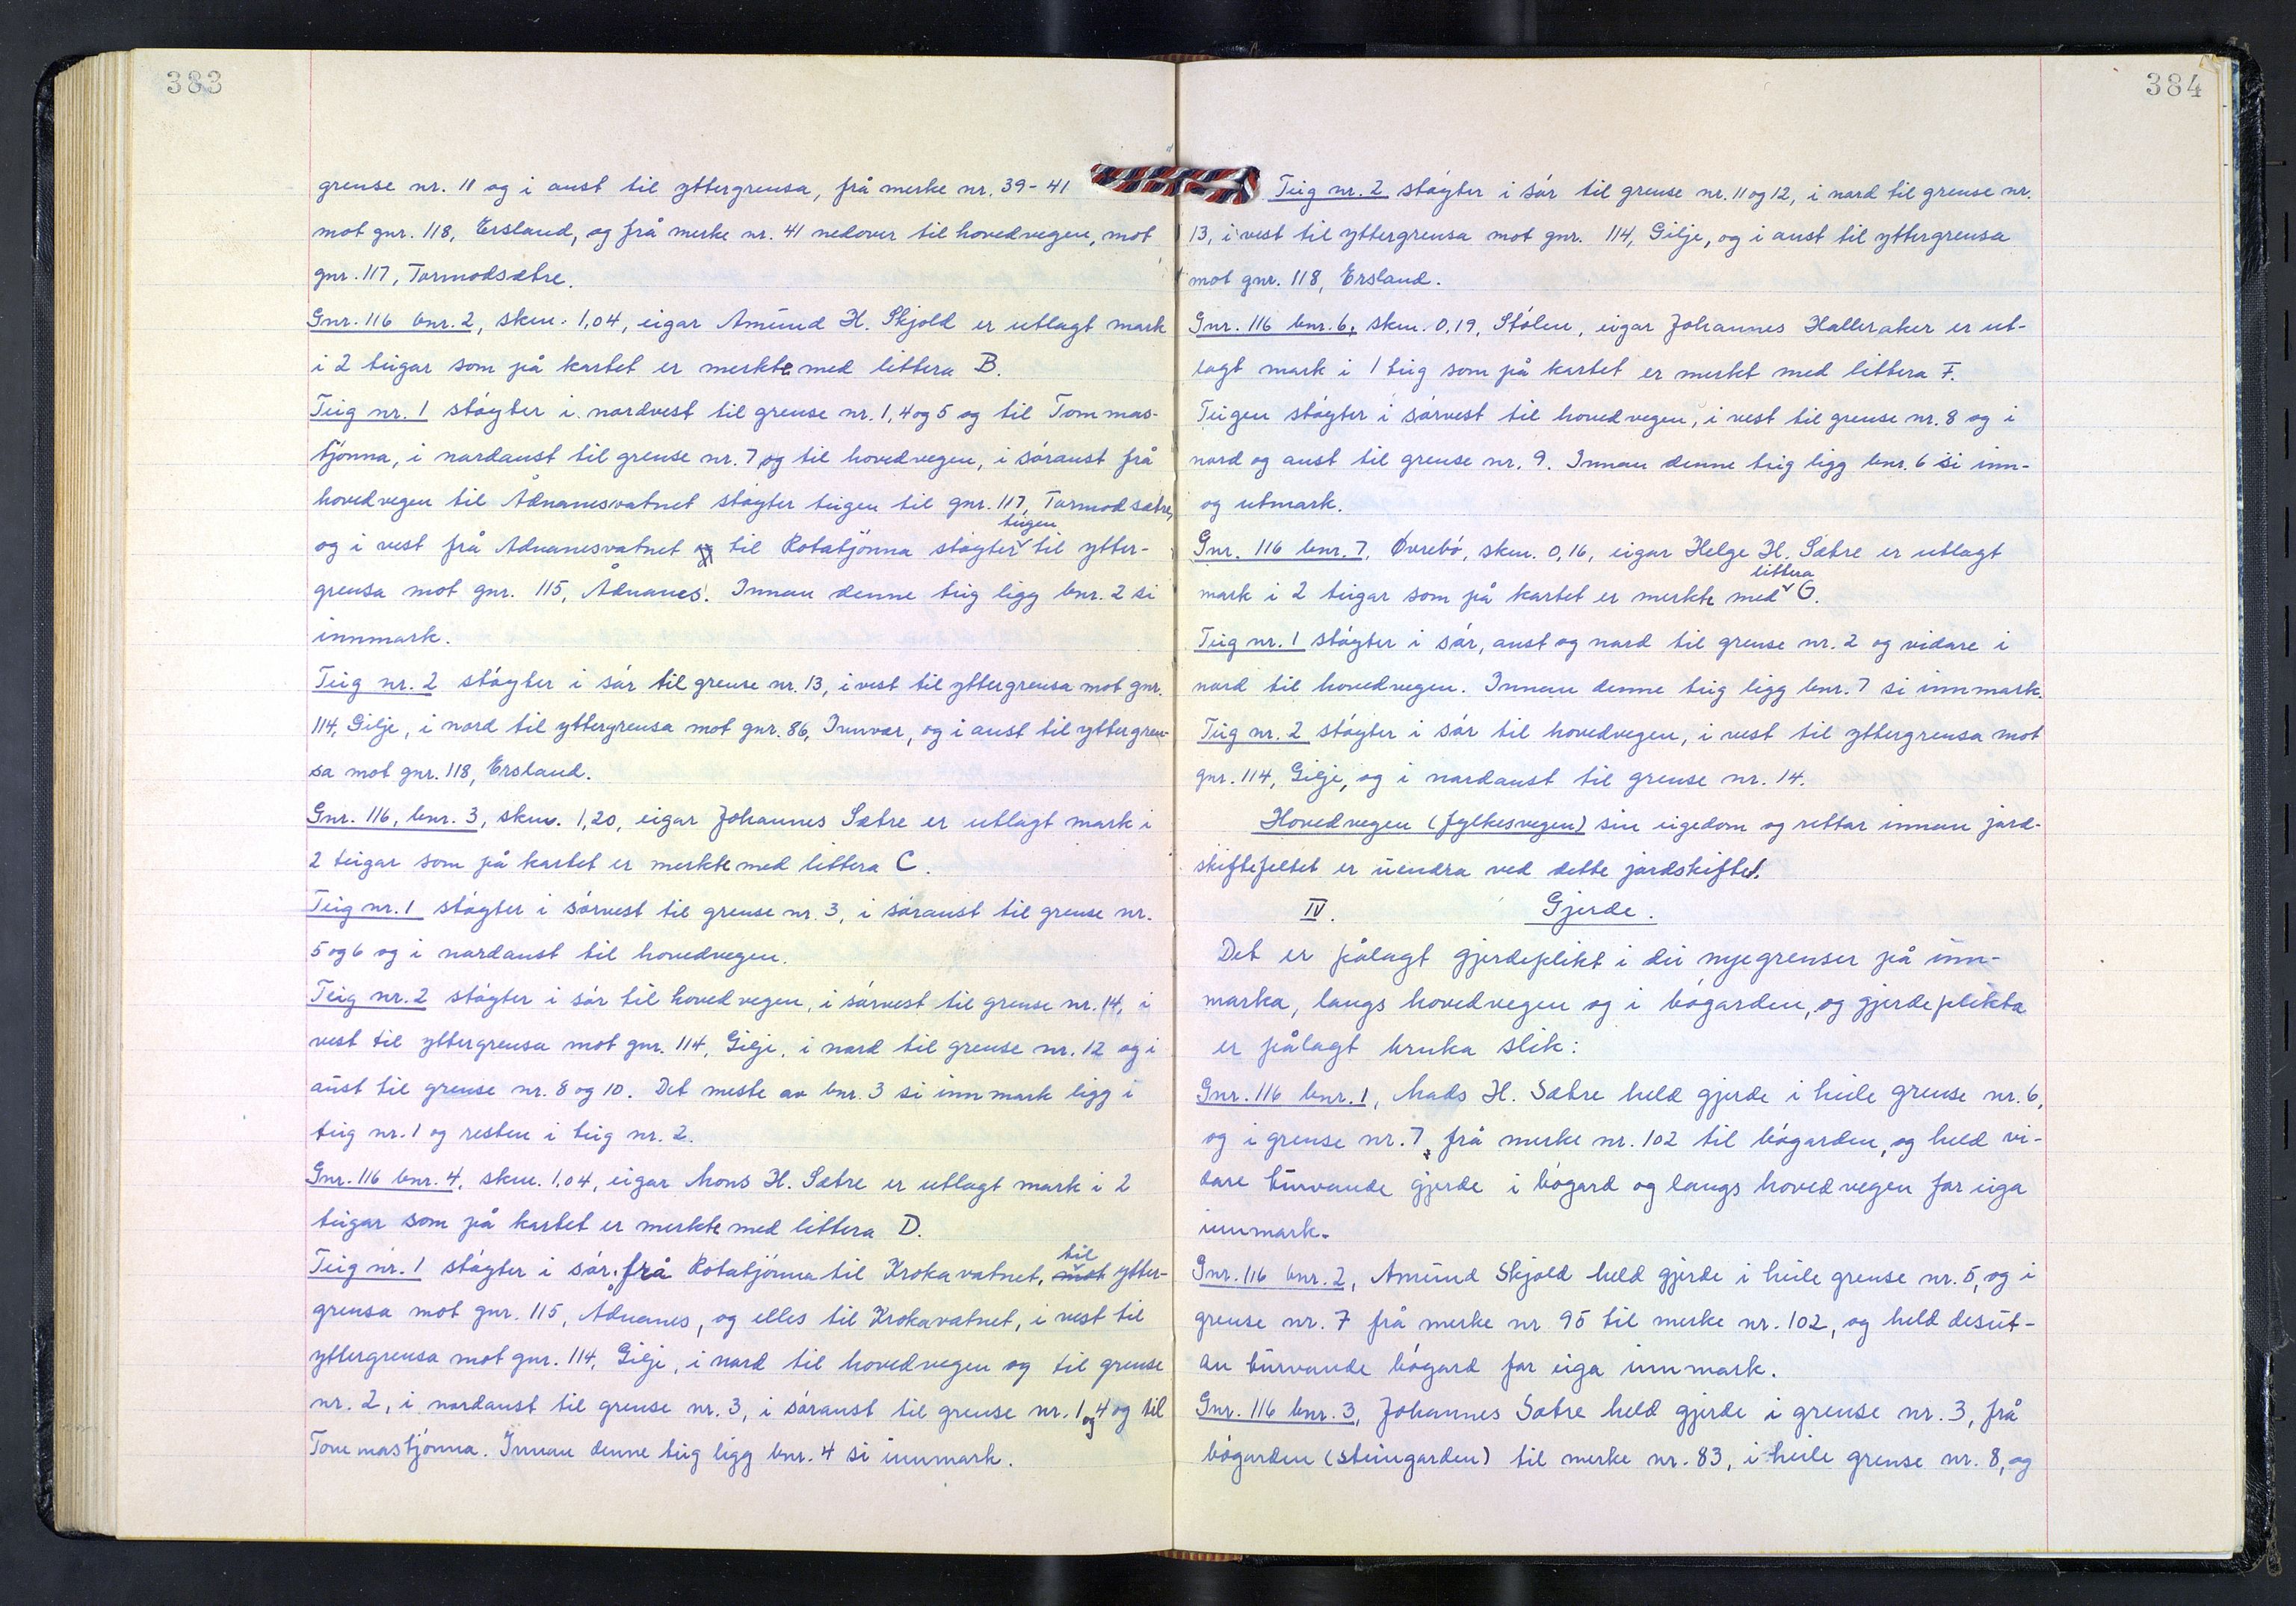 383
grense nr. 11 og i aust til yttergrensa, frå merke nr. 39-41
mot gnr. 118, Ersland, og frå merke nr. 41 nedover til hovedvegen, mot
gnr. 117, Tormodsætre.
Gnr. 116 bnr. 2, skm. 1,04, eigar Amund H. Skjold er utlagt mark
i 2 teigar som på kartet er merkte med littera B.
Teig nr. 1 støyter i nordvest til grense nr. 1, 4 og 5 og til Tommas-
tjønna, i nordaust til grense nr. 7 og til hovedvegen, i søraust frå
hovedvegen til Ådnanesvatnet støyter teigen til gnr. 117, Tormodsætre,
og i vest frå Ådnanesvatnet til Rotatjønna støyter teigen til ytter-
grensa mot gnr. 115, Ådnanes. Innan denne teig ligg bnr. 2 si
innmark.
Teig nr. 2 støyter i sør til grense nr. 13, i vest til yttergrensa mot gnr.
114, Gilje, i nord til yttergrensa mot gnr. 86, Innvær, og i aust til yttergren-
sa mot gnr. 118, Ersland.
Gnr. 116, bnr. 3, skm. 1,20, eigar Johannes Sætre er utlagt mark i
2 teigar som på kartet er merkte med littera C.
Teig nr. 1 støyter i sørvest til grense nr. 3, i søraust til grense nr.
5 og 6 og i nordaust til hovedvegen.
Teig nr. 2 støyter i sør til hovedvegen, i sørvest til grense nr. 14, i
vest til yttergrensa mot gnr. 114, Gilje, i nord til grense nr. 12 og i
aust til grense nr. 8 og 10. Det meste av bnr. 3 si innmark ligg i
teig nr. 1 og resten i teig nr. 2.
Gnr. 116 bnr. 4, skm. 1,04, eigar Mons H. Sætre er utlagt mark i 2
teigar som på kartet er merkte med littera D.
Teig nr. 1 støyter i sør, frå Rotatjønna til Krokavatnet, til ytter-
grensa mot gnr. 115, Ådnanes, og elles til Krokavatnet, i vest til
yttergrensa mot gnr. 114, Gilje, i nord til hovedvegen og til grense
nr. 2, i nordaust til grense nr. 3, i søraust til grense nr. 1 og 4 og til
Tommastjønna. Innan denne teig ligg bnr. 4 si innmark.
384
Teig nr. 2 støyter i sør til grense nr. 11 og 12, i nord til grense nr.
13, i vest til yttergrensa mot gnr. 114, Gilje, og i aust til yttergrensa
mot gnr. 118, Ersland.
Gnr. 116 bnr. 6, skm. 0,19, Stølen, eigar Johannes Halleraker er ut-
lagt mark i 1 teig som på kartet er merkt med littera F.
Teigen støyter i sørvest til hovedvegen, i vest til grense nr. 8 og i
nord og aust til grense nr. 9. Innan denne teig ligg bnr. 6 si inn-
og utmark.
Gnr. 116 bnr. 7, Øvrebø, skm. 0,16, eigar Helge H. Sætre er utlagt
mark i 2 teigar som på kartet er merkte med littera G.
Teig nr. 1 støyter i sør, aust og nord til grense nr. 2 og vidare i
nord til hovedvegen. Innan denne teig ligg bnr. 7 si innmark.
Teig nr. 2 støyter i sør til hovedvegen, i vest til yttergrensa mot
gnr. 114, Gilje, og i nordaust til grense nr. 14.
Hovedvegen (fylkesvegen) sin eigedom og rettar innan jord-
skiftefeltet er uendra ved dette jordskiftet.
IV. Gjerde.
Det er pålagt gjerdeplikt i dei nye grenser på inn-
marka, langs hovedvegen og i bøgarden, og gjerdeplikta
er pålagt bruka slik:
Gnr. 116 bnr. 1, Mads H. Sætre held gjerde i heile grense nr. 6,
og i grense nr. 7, frå merke nr. 102 til bøgarden, og held vi-
dare turvande gjerde i bøgard og langs hovedvegen for eiga
innmark.
Gnr. 116 bnr. 2, Amund Skjold held gjerde i heile grense nr. 5, og i
grense nr. 7 frå merke nr 95 til merke nr. 102, og held desut-
an turvande bøgard for eiga innmark.
Gnr. 116 bnr. 3, Johannes Sætre held gjerde i grense nr. 3, frå
bøgarden (steingarden) til merke nr. 83, i heile grense nr. 8, og